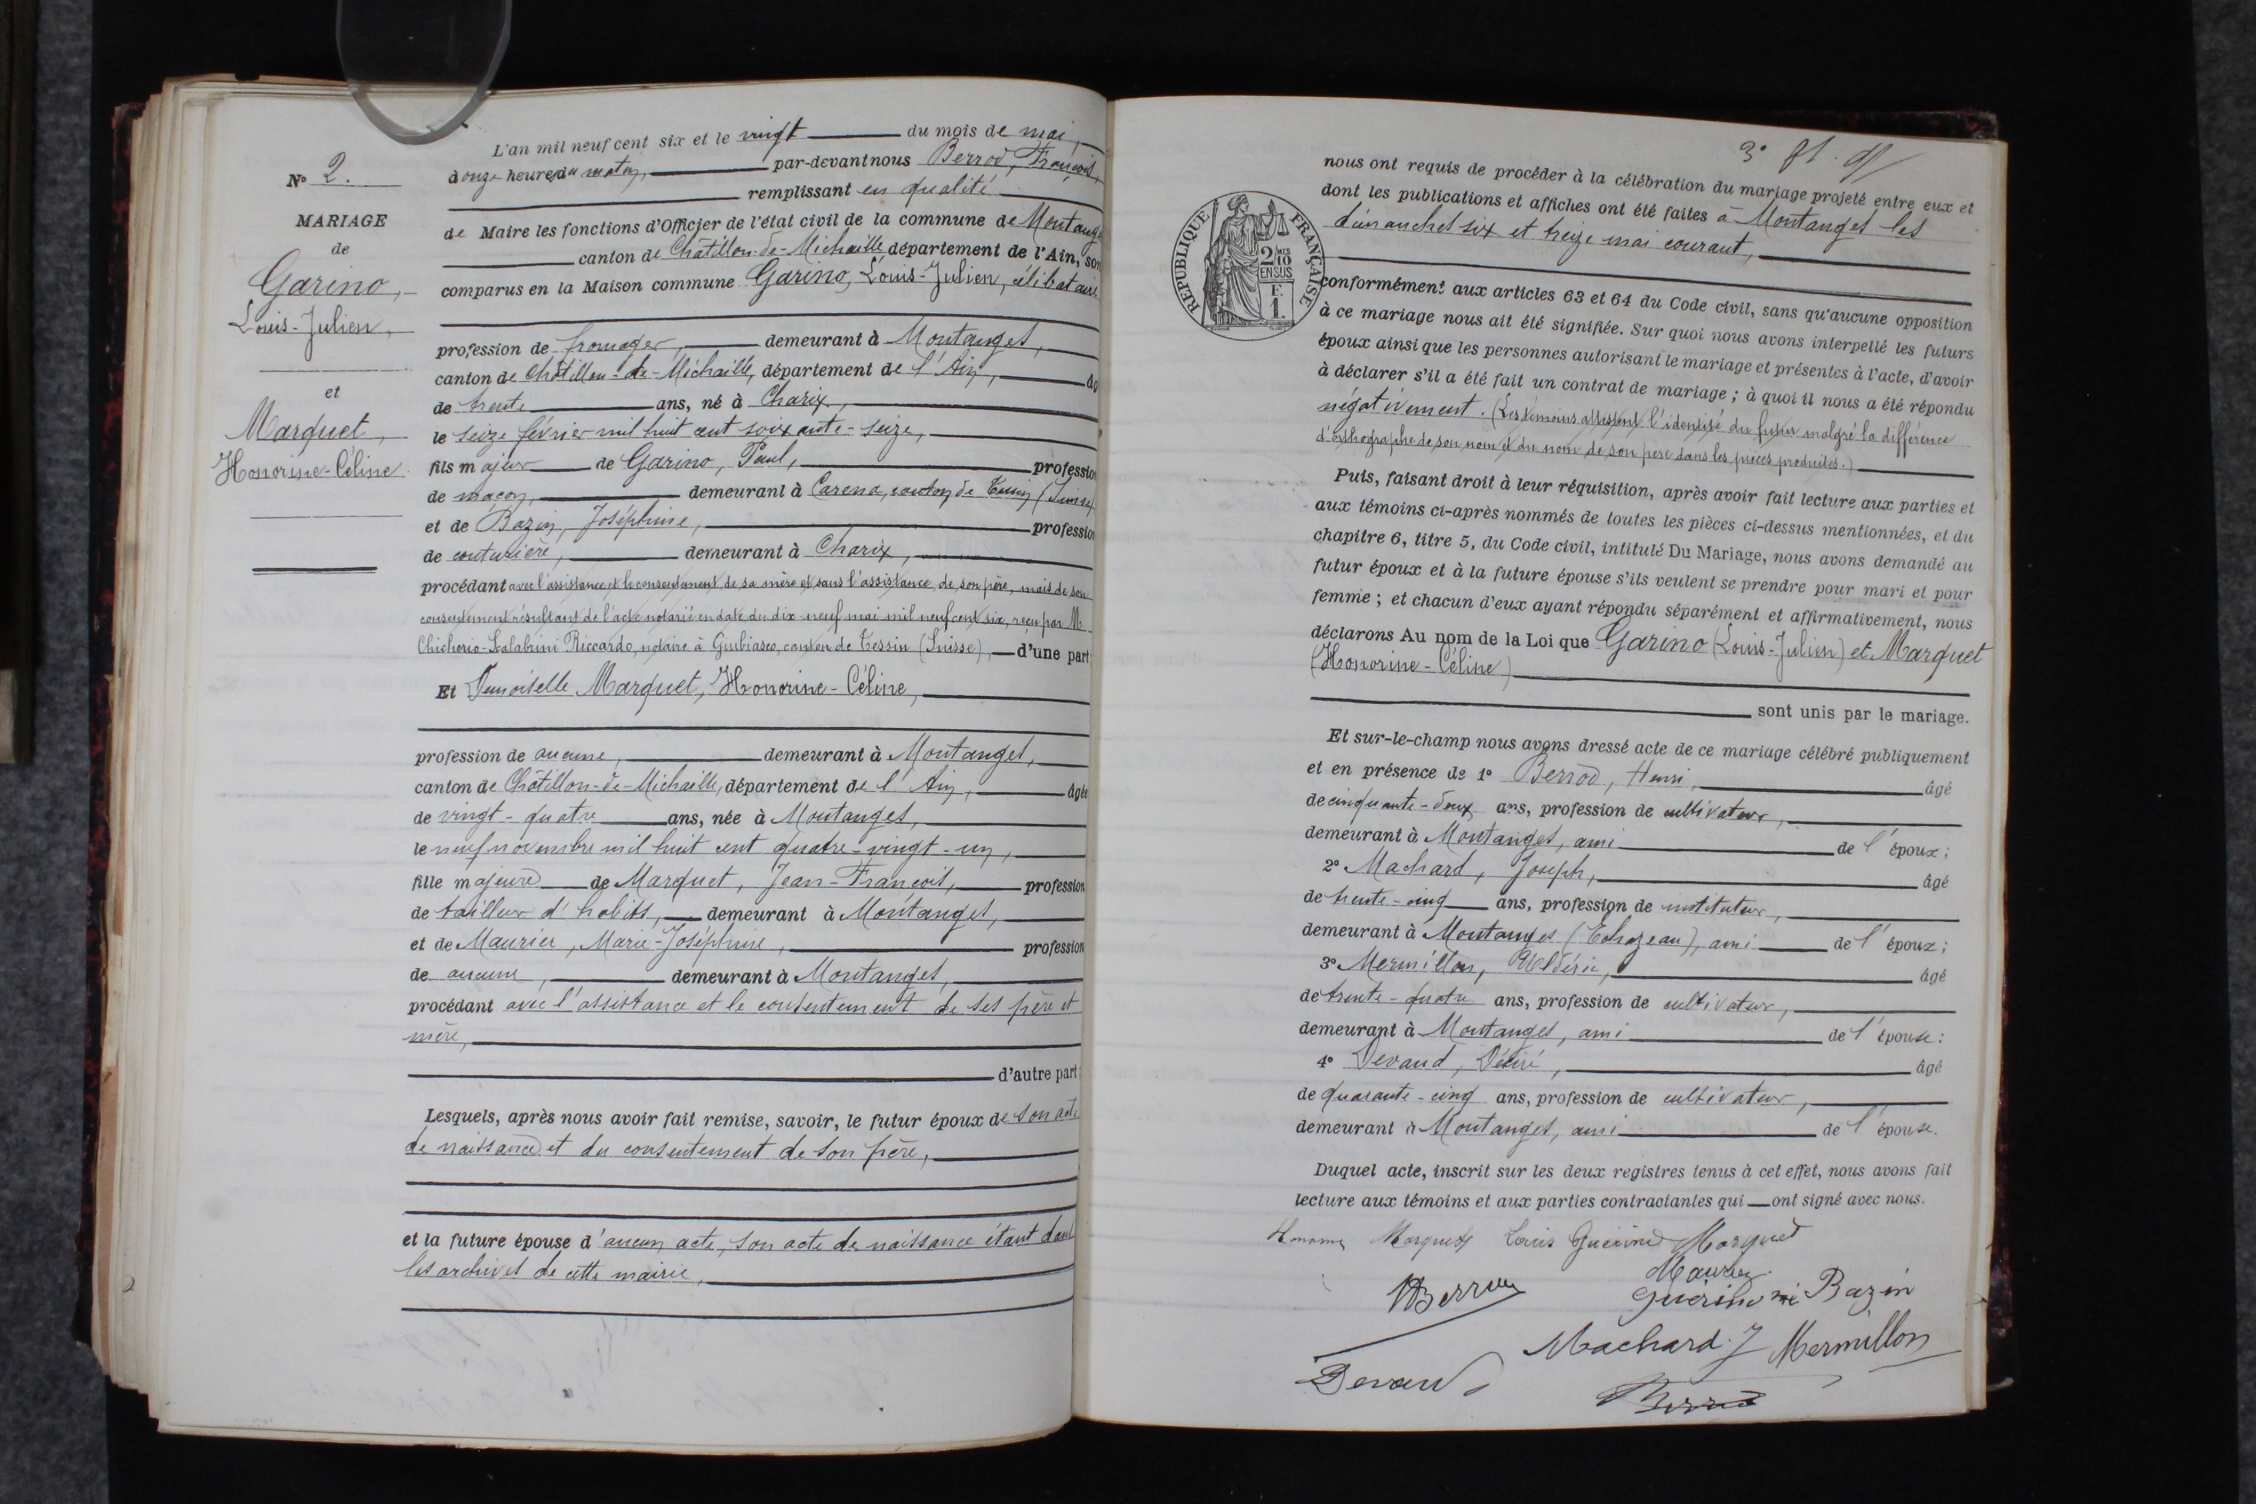 L'an mil neuf cent six et le vingt du mois de mai,
à onze heures du matin, par-devant nous Berrod, François,
remplissant en qualité
de Maire les fonctions d'Officier de l'état civil de la commune de Montanges
canton de Châtillon-de-Michaille département de l'Ain, son
comparus en la Maison commune Garino, Louis-Julien, célibataire
profession de fromager, demeurant à Montanges,
canton de Châtillon-de-Michaille, département de l'Ain, âg
de trente ans, né à Charix,
le seize février mil huit cent soixante-seize,
fils majeur de Garino, Paul, profession
de maçon, demeurant à Carena, canton de (Suisse)
et de Bazin, Joséphine, profession
de couturière, demeurant à Charix,
procédant avec l'assistance et le consentement de sa mère et sans l'assistance de son père, mais de son
consentement résultant de l'acte notarié en date du dix-neuf mai mil neuf cent six, reçu par M
Chicherio-Scalabrini Riccardo, notaire à Giubiasco, canton de Tessin (Suisse), d'une part;
Et Demoiselle Marquet, Honorine-Céline,
profession de aucune, demeurant à Montanges,
canton de Châtillon-de-Michaille, département de l'Ain, âgée
de vingt-quatre ans, née à Montanges,
le neuf novembre mil huit cent quatre-vingt-un,
fille majeure de Marquet, Jean-François, profession
de tailleur d'habits, demeurant à Montanges,
et de Maurier, Marie-Joséphine, profession
de aucune, demeurant à Montanges,
procédant avec l'assistance et le consentement de ses père et
mère,
d'autre part;
Lesquels, après nous avoir fait remise, savoir, le futur époux de son acte
de naissance et du consentement de son père,
et la future épouse d'aucun acte, son acte de naissance étant dans
les archives de cette mairie,
No 2.
MARIAGE
de
Garino,
Louis-Julien,
et
Marquet,
Honorine-Céline.
3e
RÉPUBLIQUE FRANÇAISE
2/10 MES
EN SUS
F.
1.
nous ont requis de procéder à la célébration du mariage projeté entre eux et
dont les publications et affiches ont été faites à Montanges les
dimanches six et treize mai courant,
conformément aux articles 63 et 64 du Code civil, sans qu'aucune opposition
à ce mariage nous ait été signifiée. Sur quoi nous avons interpellé les futurs
époux ainsi que les personnes autorisant le mariage et présentes à l'acte, d'avoir
à déclarer s'il a été fait un contrat de mariage ; à quoi il nous a été répondu
négativement. (Les témoins attestent l'identité du futur malgré la différence
d'orthographe de son nom et du nom de son père dans les pièces produites.)
Puis, faisant droit à leur réquisition, après avoir fait lecture aux parties et
aux témoins ci-après nommés de toutes les pièces ci-dessus mentionnées, et du
chapitre 6, titre 5, du Code civil, intitulé Du Mariage, nous avons demandé au
futur époux et à la future épouse s'ils veulent se prendre pour mari et pour
femme ; et chacun d'eux ayant répondu séparément et affirmativement, nous
déclarons Au nom de la Loi que Garino (Louis-Julien) et Marquet
(Honorine-Céline)
sont unis par le mariage.
Et sur-le-champ nous avons dressé acte de ce mariage célébré publiquement
et en présence de 1° Berrod, Henri, âgé
de cinquante-deux ans, profession de cultivateur,
demeurant à Montanges, ami de l'époux;
2° Machard, Joseph, âgé
de trente-cinq ans, profession de instituteur,
demeurant à Montanges (Echazeau), ami de l'époux;
3° Mermillon, âgé
de trente-quatre ans, profession de cultivateur,
demeurant à Montanges, ami de l'épouse:
4° Devaud, Désiré, âgé
de quarante-cinq ans, profession de cultivateur,
demeurant à Montanges, ami de l'épouse.
Duquel acte, inscrit sur les deux registres tenus à cet effet, nous avons fait
lecture aux témoins et aux parties contractantes qui ont signé avec nous.
Marquet Louis Guérino Marquet
Maurier
HBerrod Guérino née Bazin
Machard J Mermillon
Devaud Berrod